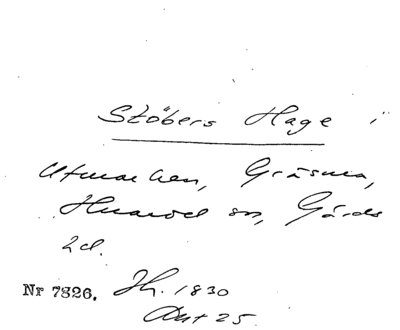 Stöbers Hage i
Utmarken, Gräsma,
sn, Gårds
hd.
Nr 7826. Jh. 1830
Akt 25